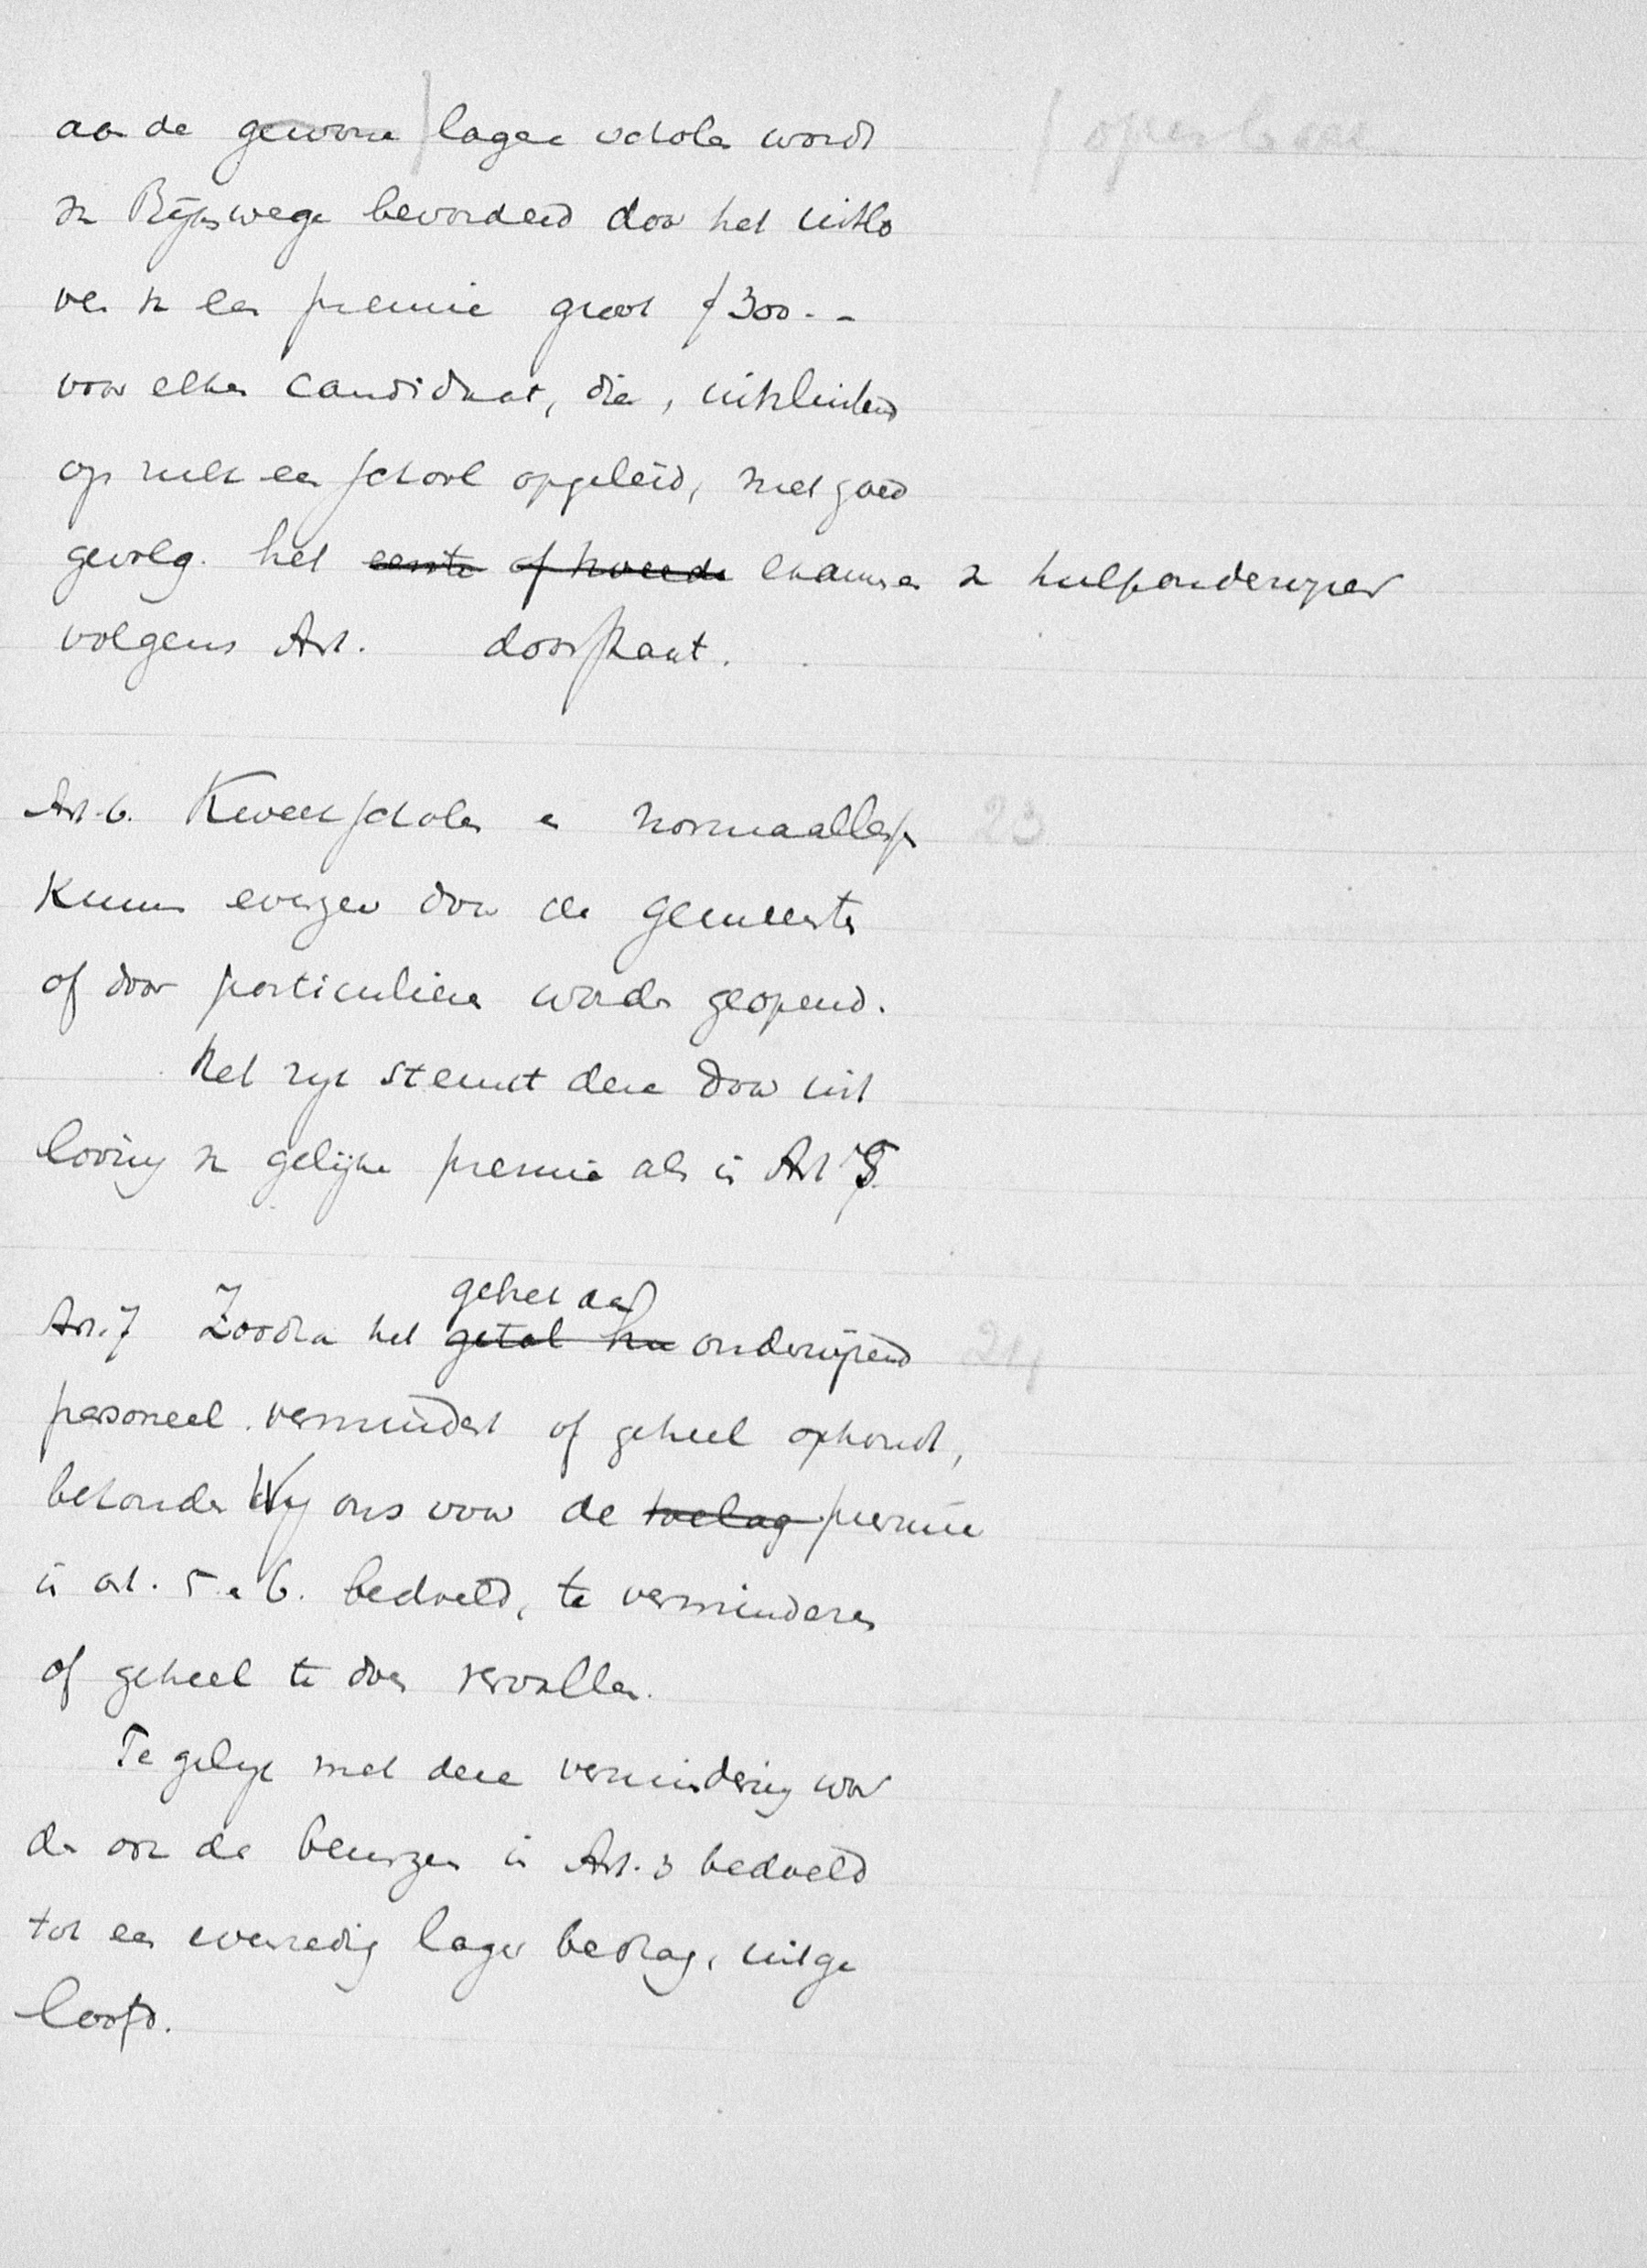 aan de gewone / lagere scholen wordt / openbare
vn Rijkswege bevorderd door het uitlo
ven vn een premie groot f 300.-
voor elken candidaat, die, uitsluitend
op zulk een school opgeleid, met goed
gevolg het eerste of tweede examen vn hulponderwijzer
volgens Art. doorstaat.
Art. 6. Kweekscholen en normaallessen 23
kunnen evenzeer door de gemeenten
of door particulieren worden geopend.
Het rijk steunt deze door uit
loving vn gelijke premie als in Art 5.
geheel der
Art. 7 Zoodra het getal hu onderwijzend 24
personeel vermindert of geheel ophoudt,
behouden Wij ons voor de toelag premie
in art. 5 en 6. bedoeld, te verminderen
of geheel te doen vervallen.
Te gelijk met deze vermindering wor
den ook de beurzen in Art. 3 bedoeld
tot een evenredig lager bedrag, uitge
loofd.